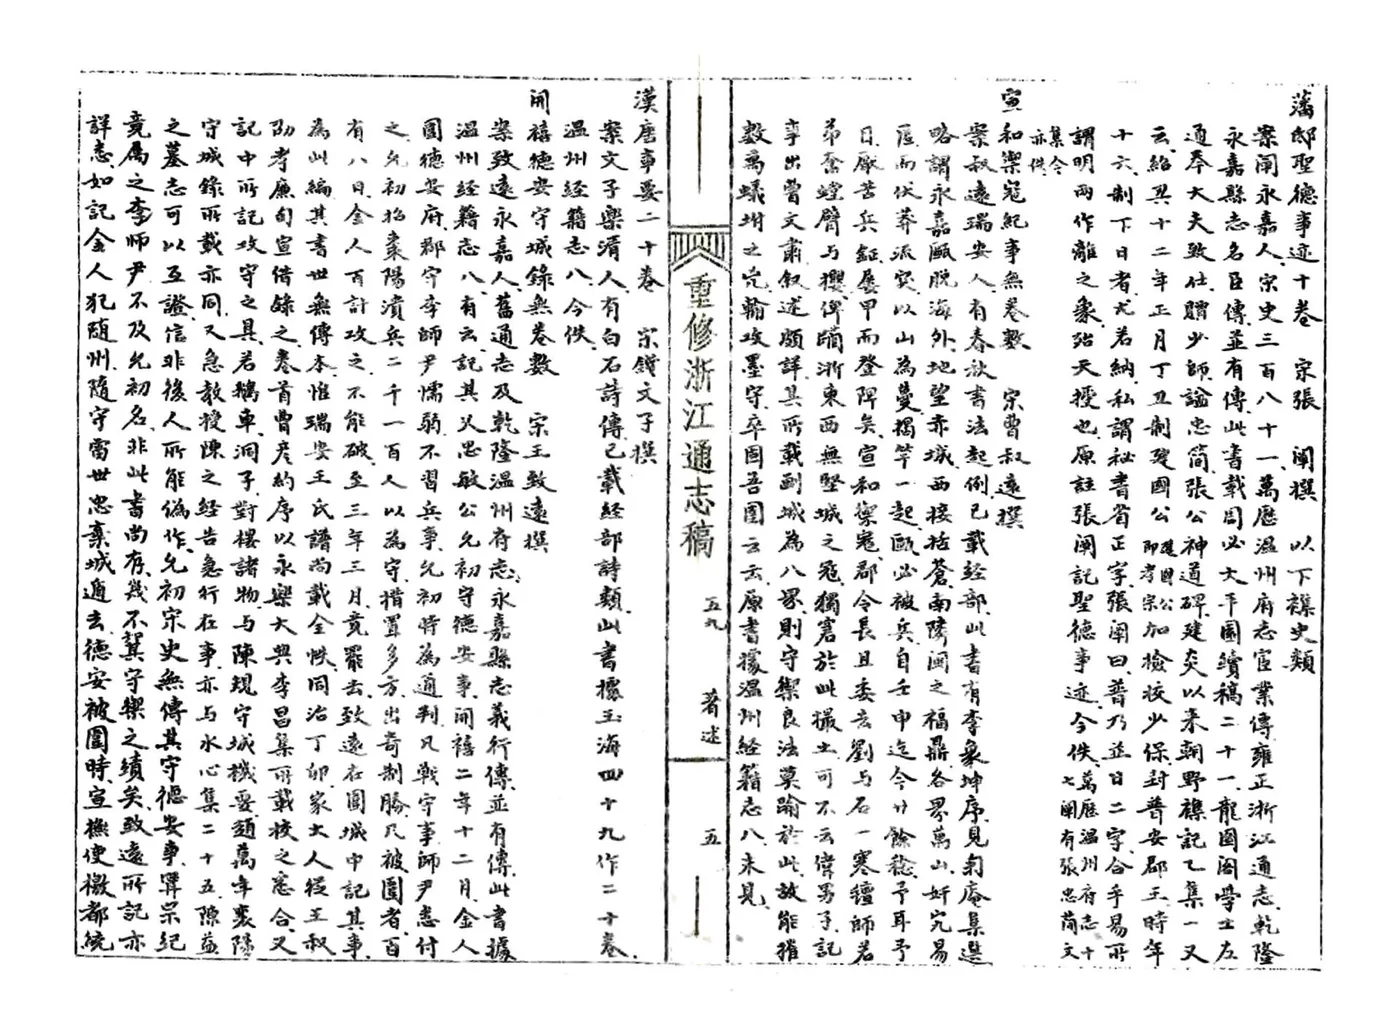 藩邸聖德事迹十卷　宋張　闡撰　以下襍史類
案闡永嘉人宋史三百八十一萬歷溫州府志宦業傳雍正浙江通志乾隆
永嘉縣志名臣傳並有傳此書載周必大平園續稿二十一龍圖閣學士左
通奉大夫致仕贈少師諡忠簡張公神道碑建炎以來朝野襍記乙集一又
云紹興十二年正月丁丑制建國公建國公即孝宗加檢校少保封普安郡王時年
十六制下日者尤若納私謂秘書省正字張闡曰普乃並日二字合乎易所
謂明兩作離之象殆天授也原註張闡記聖德事迹今佚萬歷溫州府志十七闡有張忠簡文
集今亦佚
宣和禦寇紀事無卷數　宋曹叔遠撰
案叔遠瑞安人有春秋書法起例已載經部此書有李象坤序見匊庵集選
略謂永嘉甌脫海外地望赤城西接括蒼南隣閩之福鼎各界萬山奸宄易
匿而伏莽派突以山為蔓揭竿一起甌必被兵自壬申迄今廿餘稔予耳予
目厭苦兵鉦屢甲而登陴矣宣和禦寇郡令長且委去劉与石一寒氊師若
弟奮螳臂与攖俾躪浙東西無堅城之寇獨窘於此撮土可不云偉男子記
事出曹文肅叙述頗詳其所載画城為八界則守禦良法莫踰於此故能摧
數萬蟻坿之兇輸攻墨守卒固吾圉云云原書據溫州經籍志八未見
重修浙江通志稿　五九　著述　五
漢唐事要二十卷　宋錢文子撰
案文子樂清人有白石詩傳已載經部詩類此書據玉海四十九作二十卷
溫州經籍志八今佚
開禧德安守城錄無卷數　宋王致遠撰
案致遠永嘉人舊通志及乾隆溫州府志永嘉縣志義行傳並有傳此書據
溫州經籍志八有云記其父忠敏公允初守德安事開禧二年十二月金人
圍德安府郡守李師尹懦弱不習兵事允初時為通判凡戰守事師尹悉付
之允初招棗陽潰兵二千一百人以為守措置多方出奇制勝凡被圍者百
有八日金人百計攻之不能破至三年三月竟罷去致遠在圍城中記其事
為此編其書世無傳本惟瑞安王氏譜尚載全帙同治丁卯家大人從王叔
劭孝廉甸宣借錄之卷首曹彥約序以永樂大典李昌集所載校之悉合又
記中所記攻守之具若鵝車洞子對樓諸物与陳規守城機要趙萬年襄陽
守城錄所載亦同又急教授陳之經告急行在事亦与水心集二十五陳益
之墓志可以互證信非後人所能偽作允初宋史無傳其守德安事畢宗紀
竟屬之李師尹不及允初名非此書尚存幾不冀守禦之績矣致遠所記亦
詳志如記金人犯隨州隨守雷世忠棄城遁去德安被圍時宣撫使檄都統